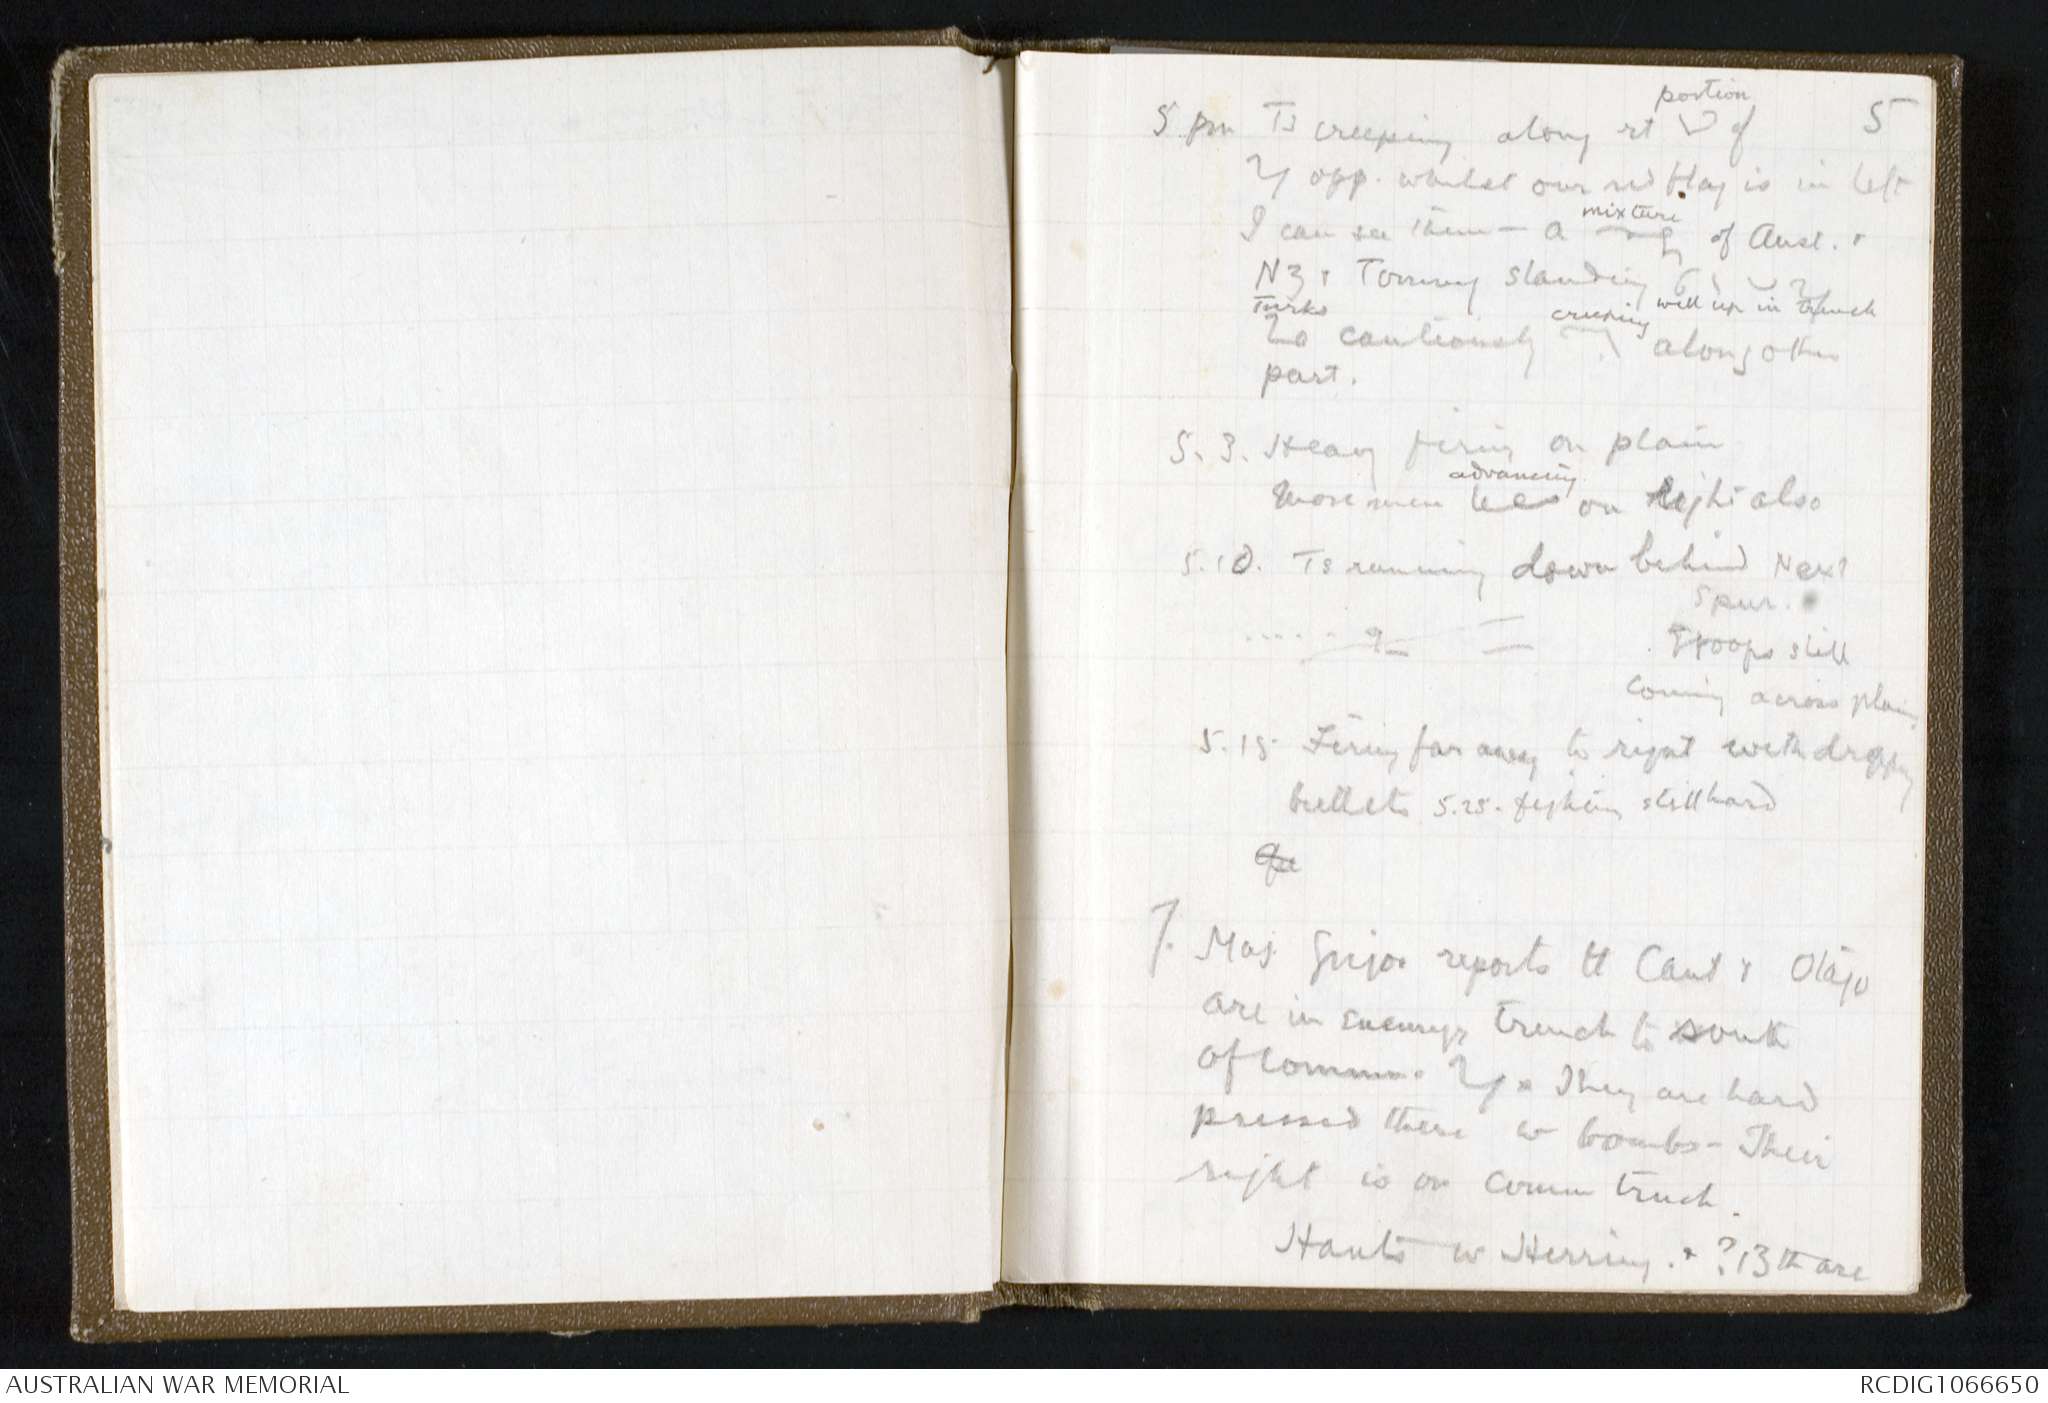 portion
5
5 pm Ts creeping along rt of
opp. whilst our red flag is in left
mixture
I can see them – a of Aust. &
NZ & Tommy standing
well up in trench
Turks creeping
cautiously along other
part.
5.3. Heavy firing on plain
advancing
More men on right also
5.10. Ts running down behind Next
Spur.
Troops still
coming across plain.
5.15. Firing far away to right with dropping
bullets 5.25. fighting still hard
7. Maj. reports tt Cant & Otago
are in enemys trench to south
of commn. They are hard
pressed there w bombs – Their
right is on comm trench.
Hants w Herring. & ?13th are
AUSTRALIAN WAR MEMORIAL
RCDIG1066650